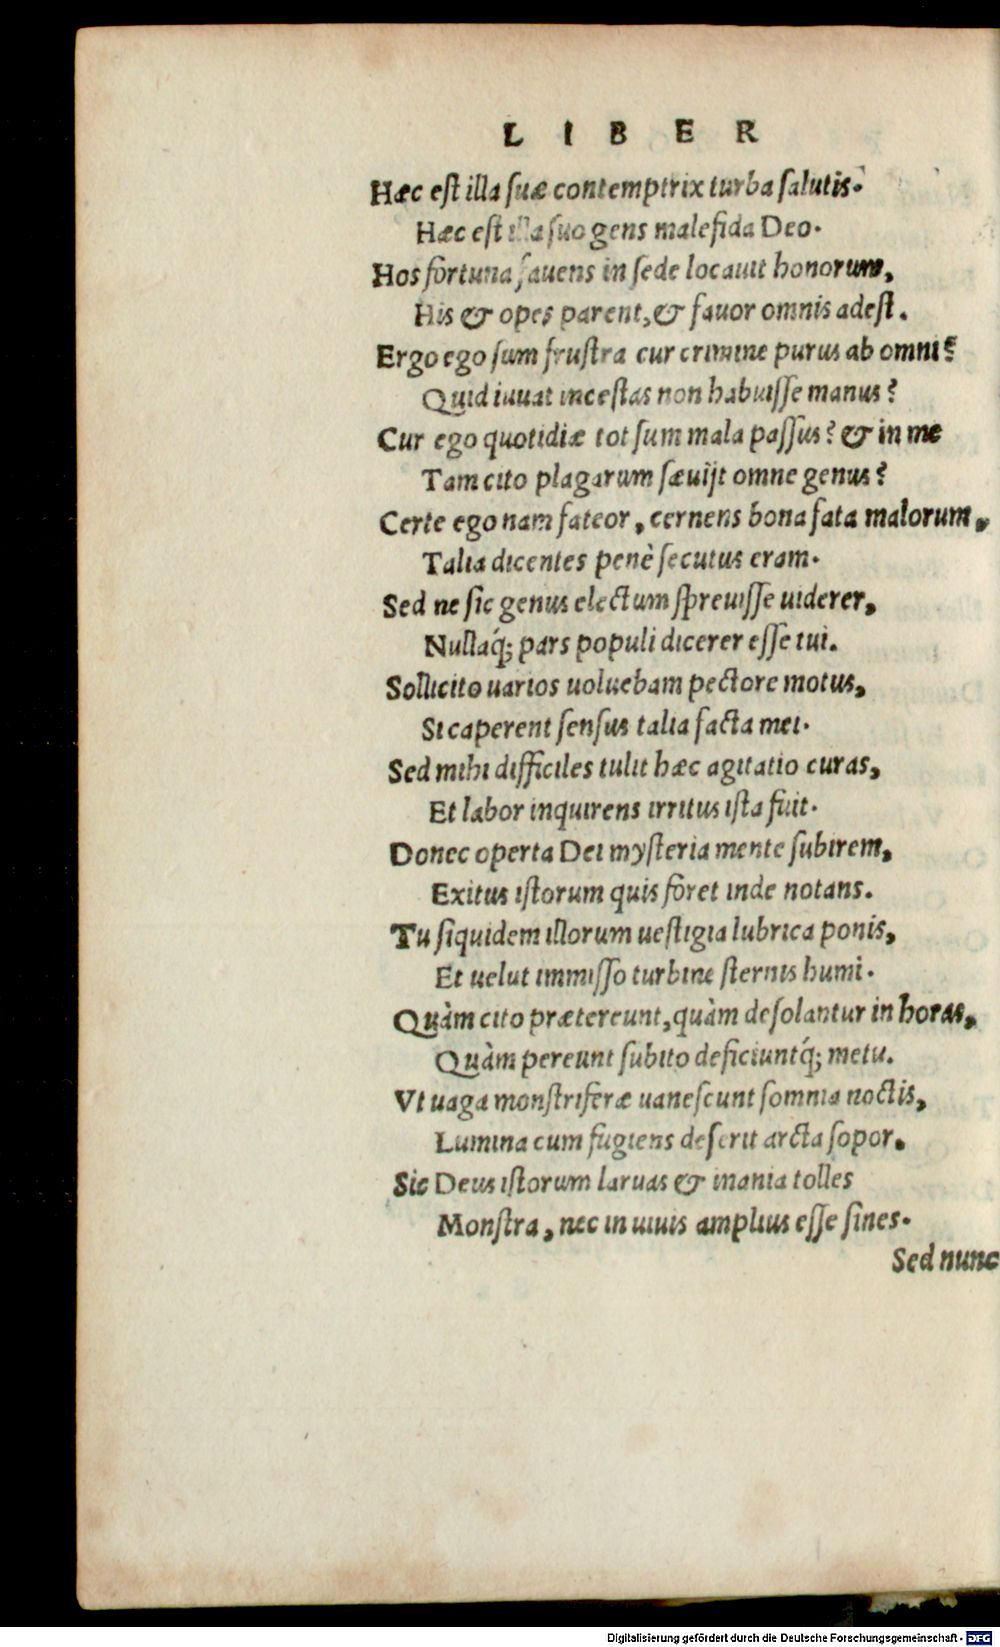 LIBER
Hæc est illa suæ contemptrix turba salutis.
Hæc est illa suo gens malefida Deo.
Hos fortuna fauens in sede locauit honorum,
His & opes parent, & fauor omnis adest.
Ergo ego sum frustra cur crimine purus ab omni?
Quid iuuat incestas non habuisse manus?
Cur ego quotidiæ tot sum mala passus? & in me
Tam cito plagarum sæuijt omne genus?
Certe ego nam fateor, cernens bona fata malorum,
Talia dicentes penè secutus eram.
Sed ne sic genus electum spreuisse uiderer,
Nullaq́; pars populi dicerer esse tui.
Sollicito uarios uoluebam pectore motus,
Si caperent sensus talia facta mei.
Sed mihi difficiles tulit hæc agitatio curas,
Et labor inquirens irritus ista fuit.
Donec operta Dei mysteria mente subirem,
Exitus istorum quis foret inde notans.
Tu siquidem illorum uestigia lubrica ponis,
Et uelut immisso turbine sternis humi.
Quàm cito prætereunt, quàm desolantur in horas,
Quàm pereunt subito deficiuntq́; metu.
Vt uaga monstriferæ uanescunt somnia noctis,
Lumina cum fugiens deserit arcta sopor.
Sic Deus istorum laruas & inania tolles
Monstra, nec in uiuis amplius esse sines.
Sed nunc
Digitalisierung gefördert durch die Deutsche Forschungsgemeinschaft - DFG